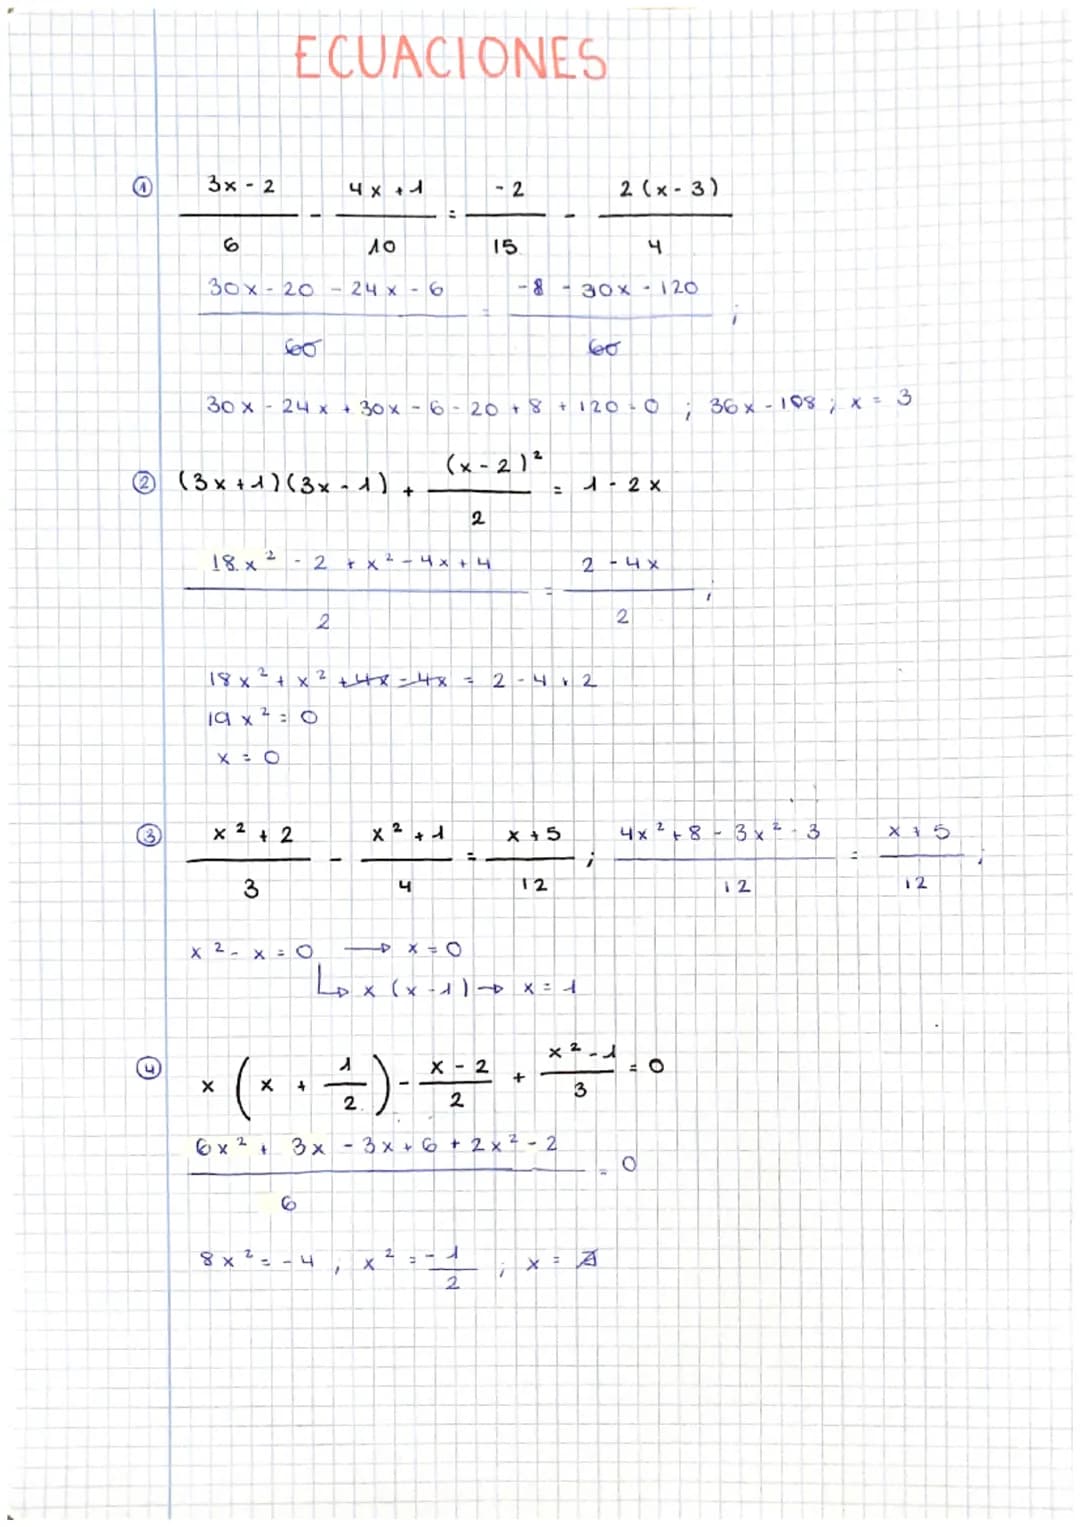 ECUACIONES
① (3x - 2)/6 - (4x + 1)/10 = (-2)/15 - (2(x - 3))/4
(30x - 20 - 24x - 6)/60 = (-8 - 30x - 120)/60 ;
30x - 24x + 30x - 6 - 20 + 8 + 120 = 0 ; 36x - 108 ; x = 3
② (3x + 1)(3x - 1) + (x - 2)²/2 = 1 - 2x
(18x² - 2 + x² - 4x + 4)/2 = (2 - 4x)/2 ;
18x² + x² + 4x - 4x = 2 - 4 + 2
19x² = 0
x = 0
③ (x² + 2)/3 - (x² + 1)/4 = (x + 5)/12 ; (4x² + 8 - 3x² - 3)/12 = (x + 5)/12 ;
x² - x = 0 → x = 0
↳ x (x - 1) → x = 1
④ x (x + 1/2) - (x - 2)/2 + (x² - 1)/3 = 0
(6x² + 3x - 3x + 6 + 2x² - 2)/6 = 0
8x² = -4 ; x² = -1/2 ; x = ∄